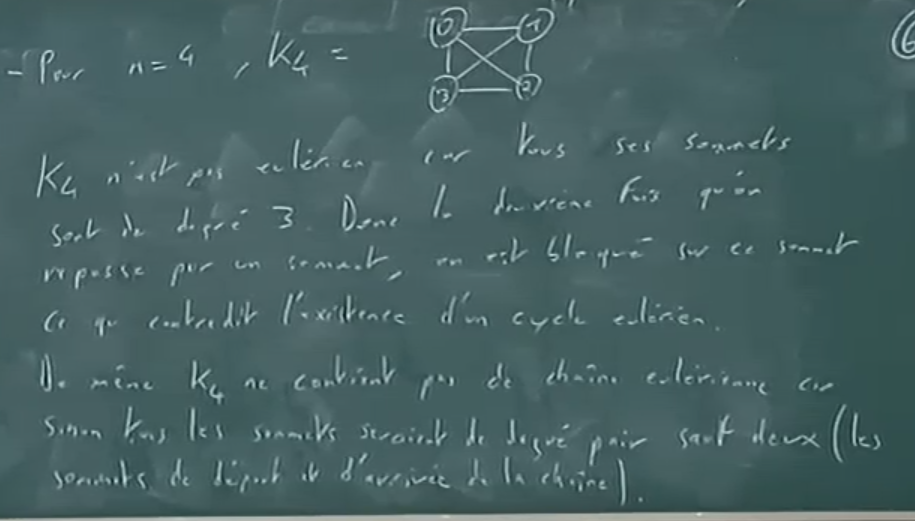 - Pour n = 4, K₄ =
0 1
3 2
K₄ n'est pas eulérien car tous ses sommets
sont de degré 3. Donc la deuxième fois qu'on
repasse par un sommet, on est bloqué sur ce sommet
ce qui contredit l'existence d'un cycle eulérien.
De même K₄ ne contient pas de chaîne eulérienne car
sinon tous les sommets seraient de degré pair sauf deux (les
sommets de départ et d'arrivée de la chaîne).